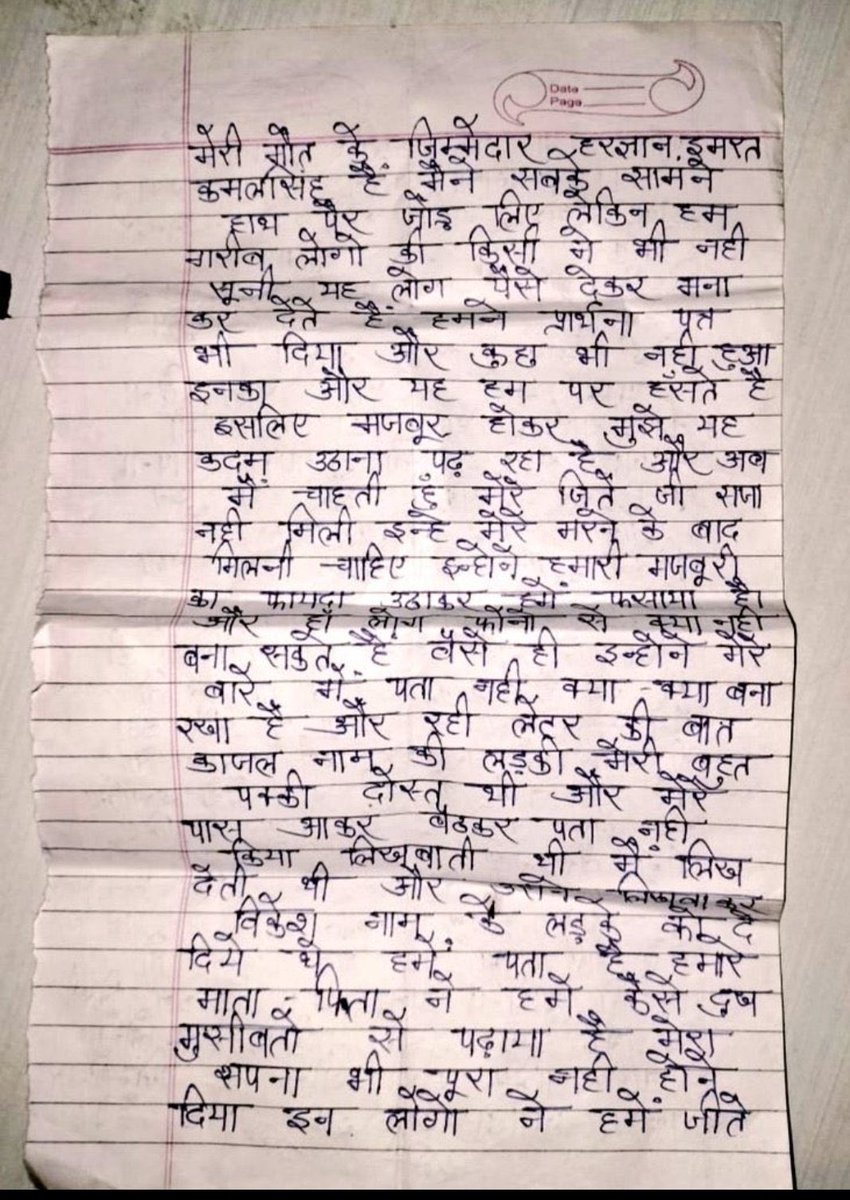 Date
Page
मेरी मौत के जिम्मेदार हरज्ञान, इमरत
कमलसिंह हैं मैने सबके सामने
हाथ पैर जोड़ लिए लेकिन हम
गरीब लोगो की किसी ने भी नही
सूनी यह लोग पैसे देकर मना
कर देते है हमने प्रार्थना पत्र
भी दिया और कुछ भी नही हुआ
इनका और यह हम पर हँसते है
इसलिए मजबूर होकर मुझे यह
कदम उठाना पढ़ रहा है और अब
मै चाहती हूँ मेरे जिते जी सजा
नही मिली इन्हे मेरे मरने के बाद
मिलनी चाहिए इन्होने हमारी मजबूरी
का फायदा उठाकर हमे फसाया है।
और हाँ लोग फोनो से क्या नही
बना सकते है वैसे ही इन्होने मेरे
बारे में पता नही क्या-क्या बना
रखा है और रही लेटर की बात
काजल नाम की लड़की मेरी बहुत
पक्की दोस्त थी और मेरे
पास आकर बैठकर पता नही
किया लिखवाती थी मैं लिख
देती थी और लिखवाकर
विकेश नाम के लड़के को दे
दिये थे हमे पता है हमारे
माता-पिता ने हमे कैसे दुख
मुसीबतो से पढ़ाया है मेरा
सपना भी पूरा नही होने
दिया इन लोगो ने हमें जीते